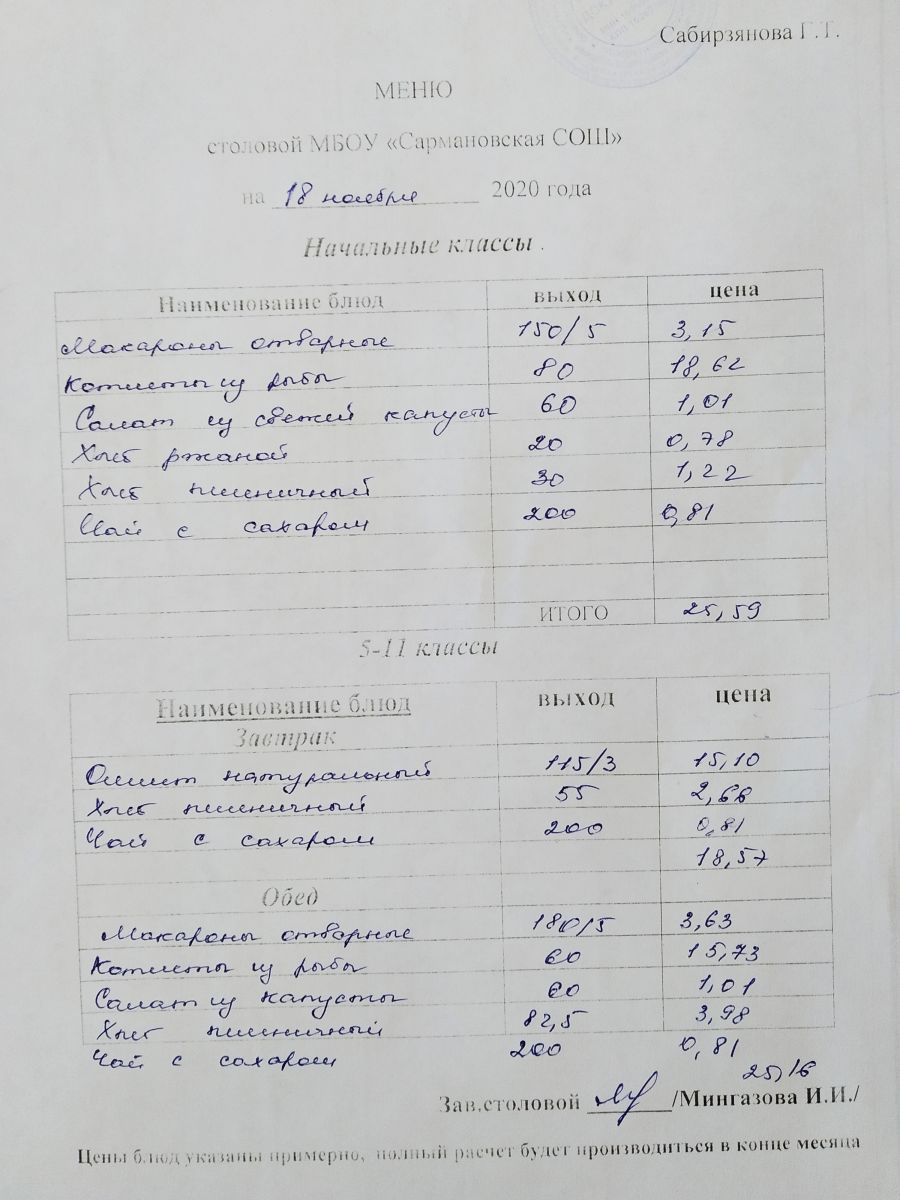 Сабирзянова Г.Т.
МЕНЮ
столовой МБОУ «Сармановская СОШ»
на 18 ноября 2020 года
Начальные классы .
Наименование блюд выход цена
Макароны отварные 150/5 3,15
Котлеты из рыбы 80 18,62
Салат из свежей капусты 60 1,01
Хлеб ржаной 20 0,78
Хлеб пшеничный 30 1,22
Чай с сахаром 200 0,81
ИТОГО 25,59
5-11 классы
Наименование блюд выход цена
Завтрак
Омлет натуральный 115/3 15,10
Хлеб пшеничный 55 2,66
Чай с сахаром 200 0,81
18,57
Обед
Макароны отварные 180/5 3,63
Котлеты из рыбы 60 15,73
Салат из капусты 60 1,01
Хлеб пшеничный 82,5 3,98
Чай с сахаром 200 0,81
25,16
Зав.столовой /Мингазова И.И./
Цены блюд указаны примерно, полный расчет будет производиться в конце месяца